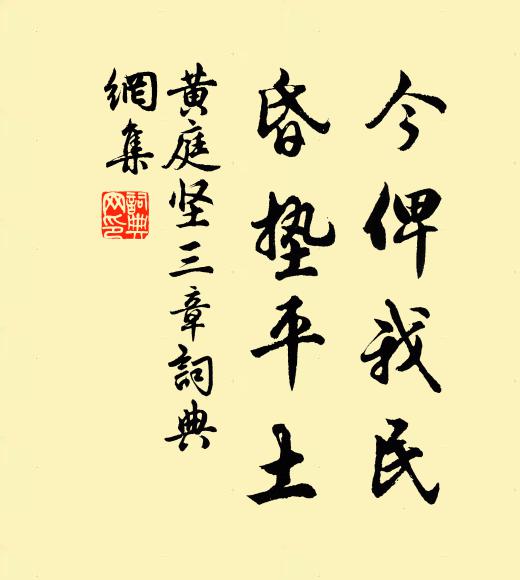 今俾我民
昏墊平土
黄庭坚三章詞典
網集
詞典
网印